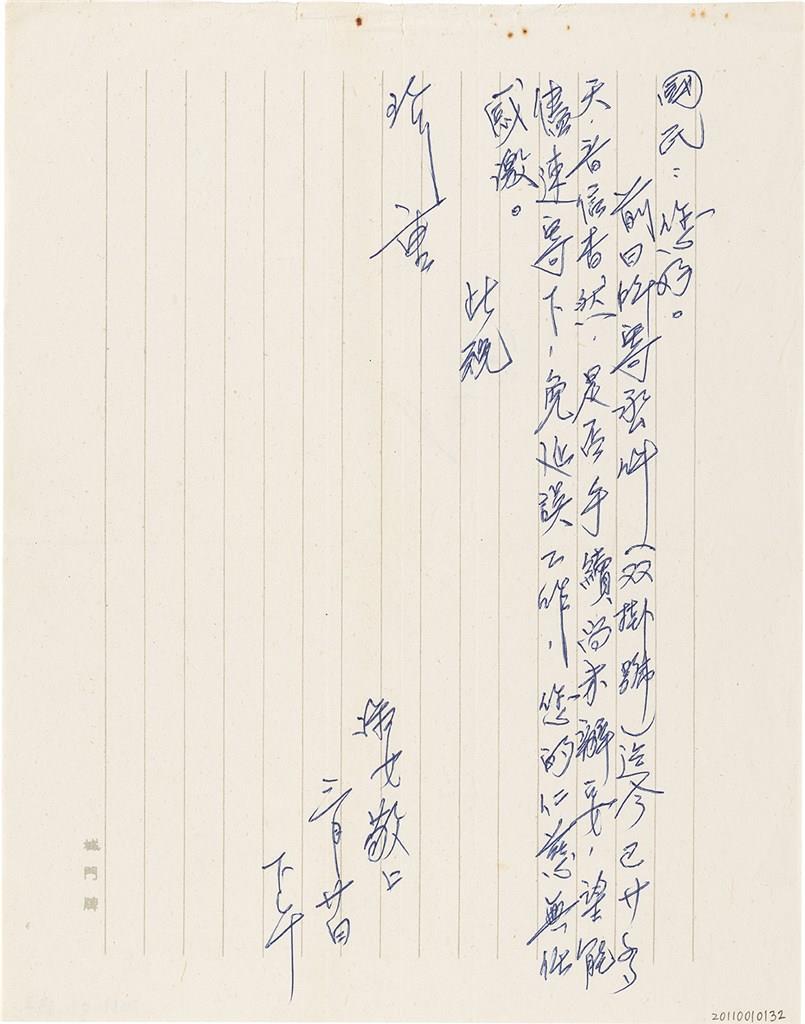 國民：您好。
前日所寄丞叫（双掛號）迄今已廿多
天，音信杳然，是否手續尚未辦妥，望能
儘速寄下，免延誤工作，您的仁慈無任
感激。
此祝
珍重
敬上
三月廿日
下午
城門牌
20110010132